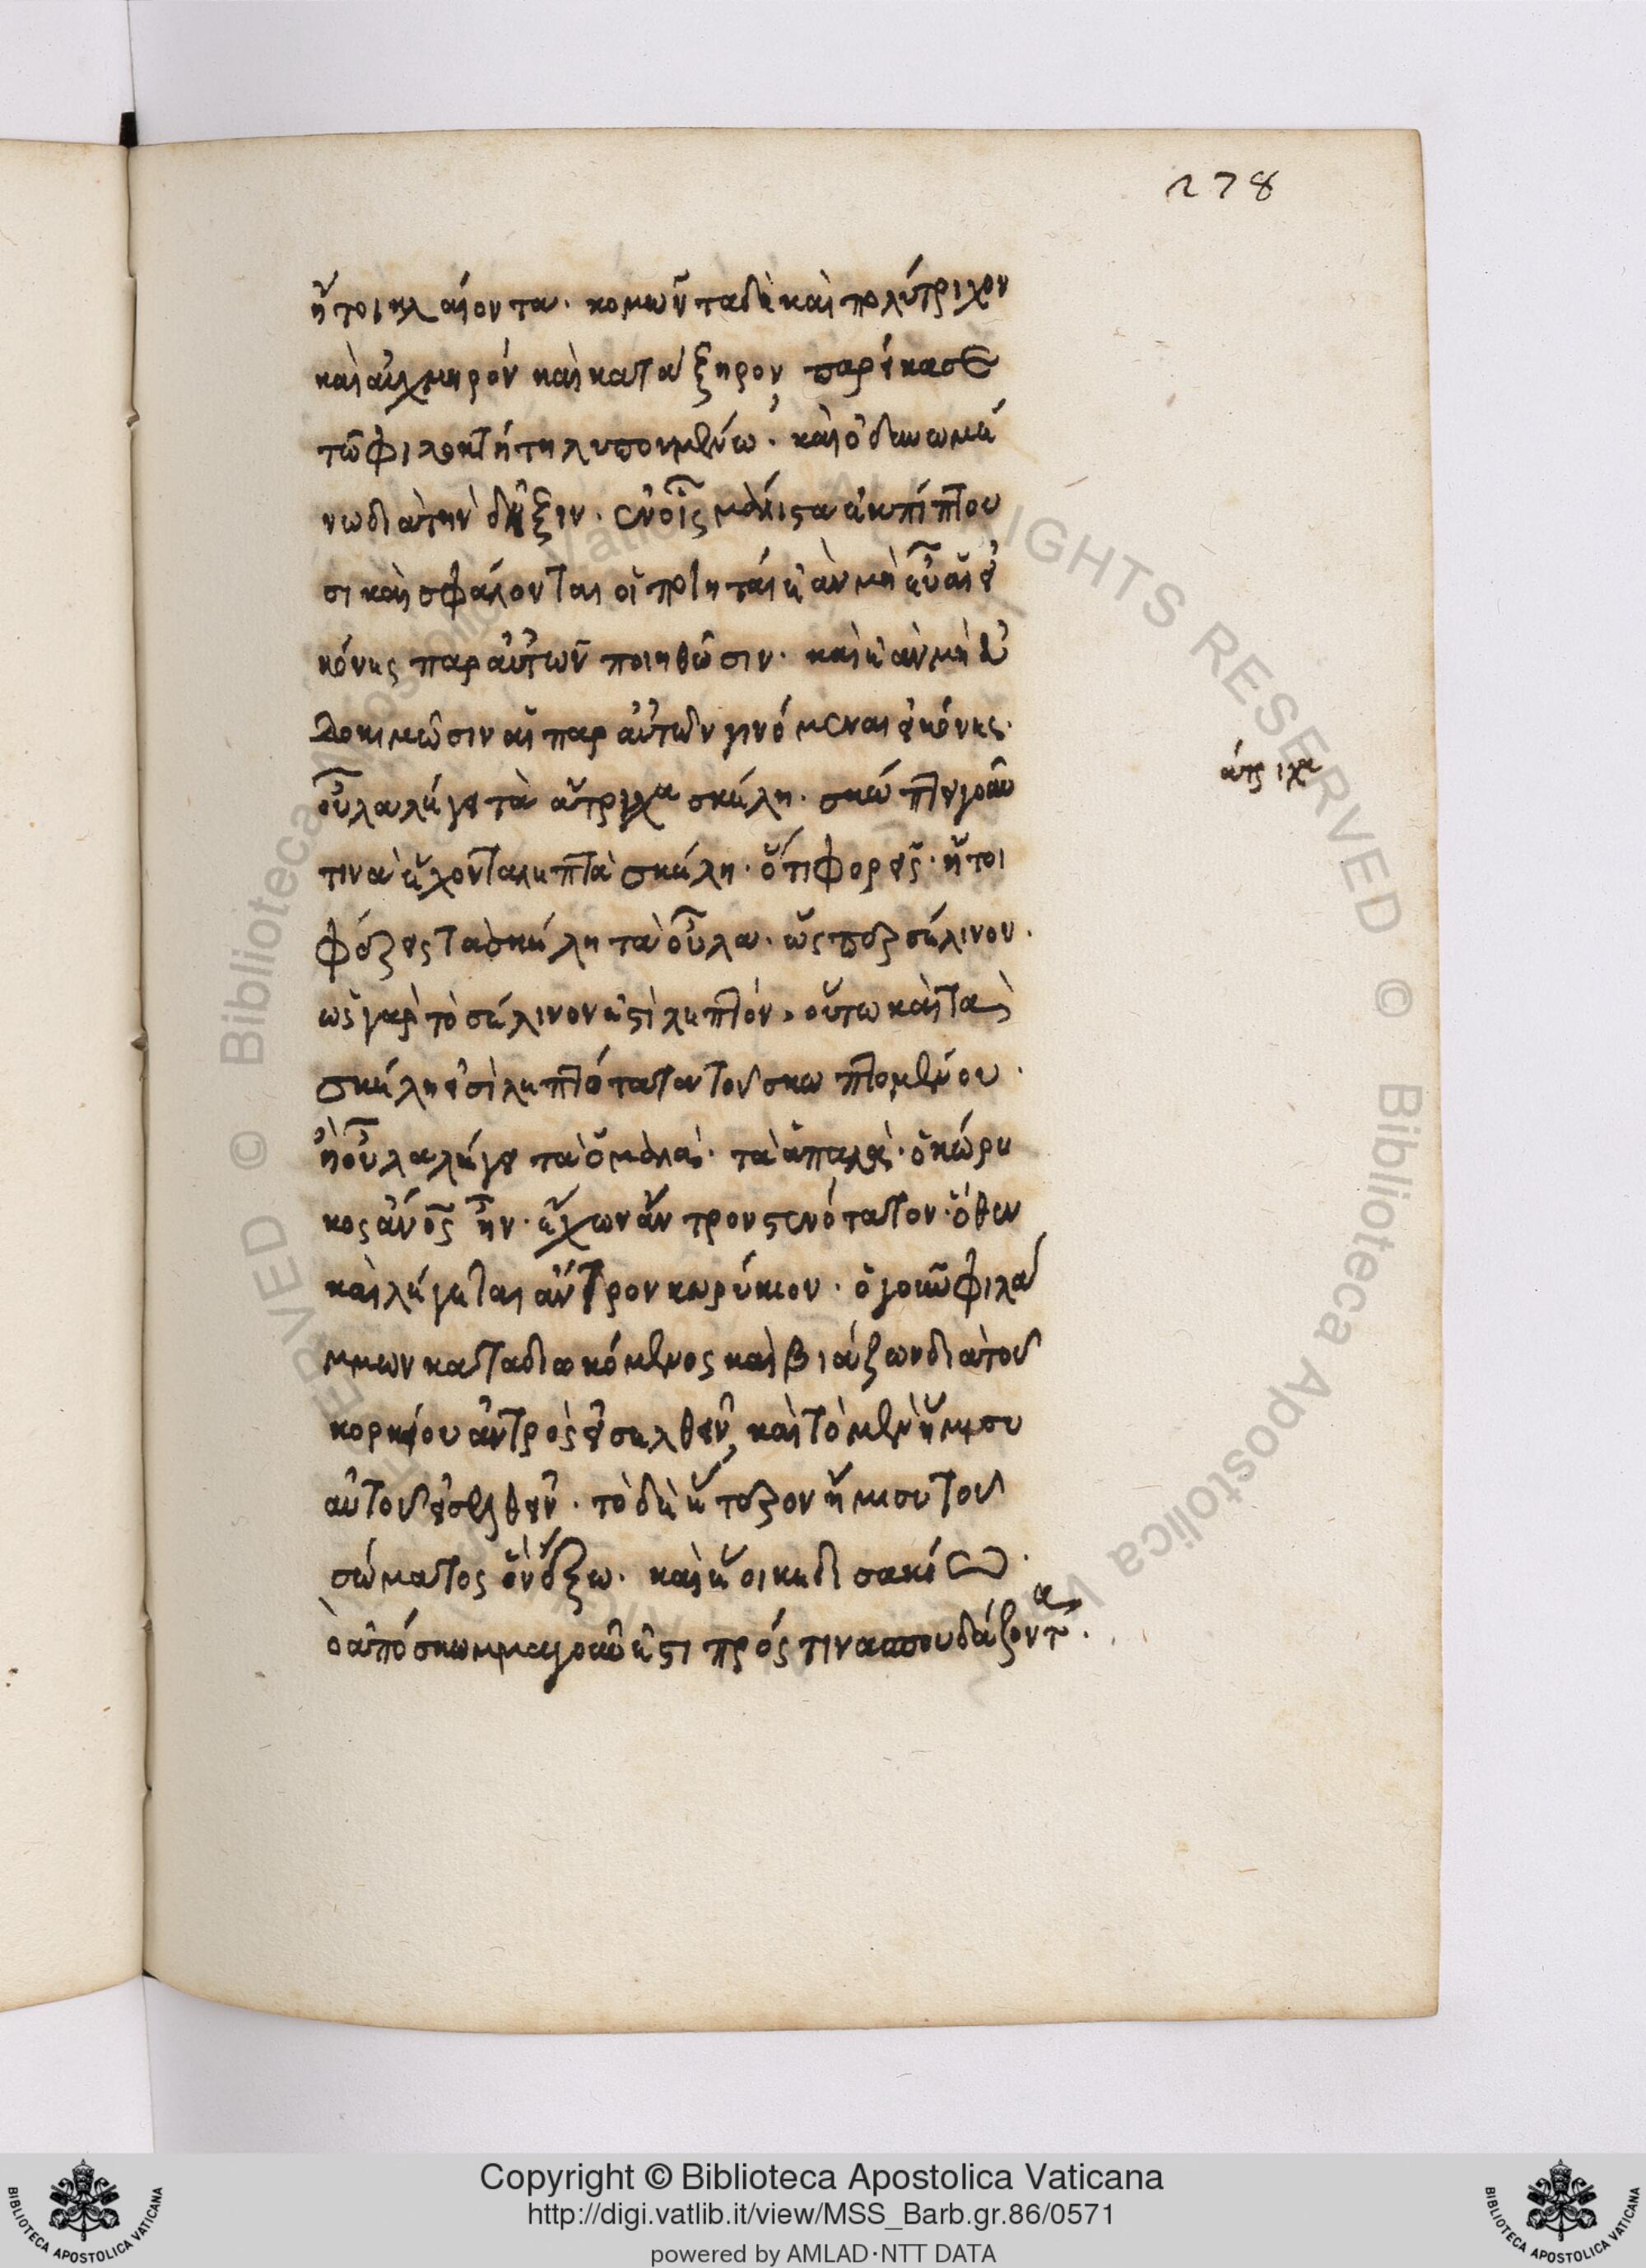 278
ἤτοι κλαίοντα· κομῶντα δὲ καὶ πολύτριχον
καὶ αὐχμηρόν καὶ κατάξηρον, παρείκασε
τῶ φιλοκτήτη λυπουμένω· καὶ ὀδυνωμέ
νω διὰ τὴν δῆξιν· ἐν οἷς μάλιστα ἐκπίπτου
σι καὶ σφάλονται οἱ ποιηταὶ ἐὰν μὴ εὖ αἱ εἰ
κόνες παρ αὐτῶν ποιηθῶσιν· καὶ ἐὰν μὴ εὐ
δοκιμῶσιν αἱ παρ αὐτῶν γινόμεναι εἰκόνες·
οὖλα λέγει τὰ ἄτριχα σκέλη· σκώπτει γοῦν
ἄτριχα
τινὰ ἔχοντα λεπτὰ σκέλη· ὅτι φορεῖς· ἤτοι
τὰ σκέλη τὰ οὖλα· ὡς σέλινον·
ὡς γὰρ τὸ σέλινον ἐστὶ λεπτόν, οὕτω καὶ τὰ
σκέλη εἰσὶ λεπτότατα τοῦ σκωπτομένου·
ἢ οὖλα λέγει τὰ ὁμαλά· τὰ ἁπαλά· ὁ κώρυ
κος ἄνος ἦν· ἔχων ἄντρον στενότατον· ὅθεν
καὶ λέγεται ἄντρον κωρύκιον· ὁ γοῦν φιλά
μμων καταδιωκόμενος καὶ βιάζων διὰ τοῦ
κορκίου ἄντρος εἰσελθεῖν, καὶ τὸ μὲν ἥμισυ
αὐτοῦ εἰσελθεῖν· τὸ δὲ ἕτερον ἥμισυ τοῦ
σώματος ὂν ἔξω· καὶ
ὁ ἀπόσκωμμα γοῦν ἐστι πρός τινα σπουδάζοντα·
Copyright © Biblioteca Apostolica Vaticana
http://digi.vatlib.it/view/MSS_Barb.gr.86/0571
powered by AMLAD·NTT DATA
BIBLIOTECA APOSTOLICA VATICANA
BIBLIOTECA APOSTOLICA VATICANA